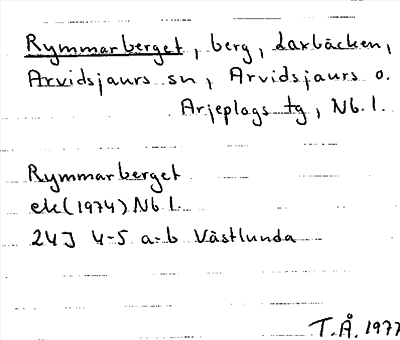 Rymmarberget, berg, Laxbäcken,
Arvidsjaurs sn, Arvidsjaurs o.
Arjeplogs tg, Nb. l.
Rymmarberget
ek (1974) Nb l.
24J 4-5 a-b Västlunda
T.Å. 1977